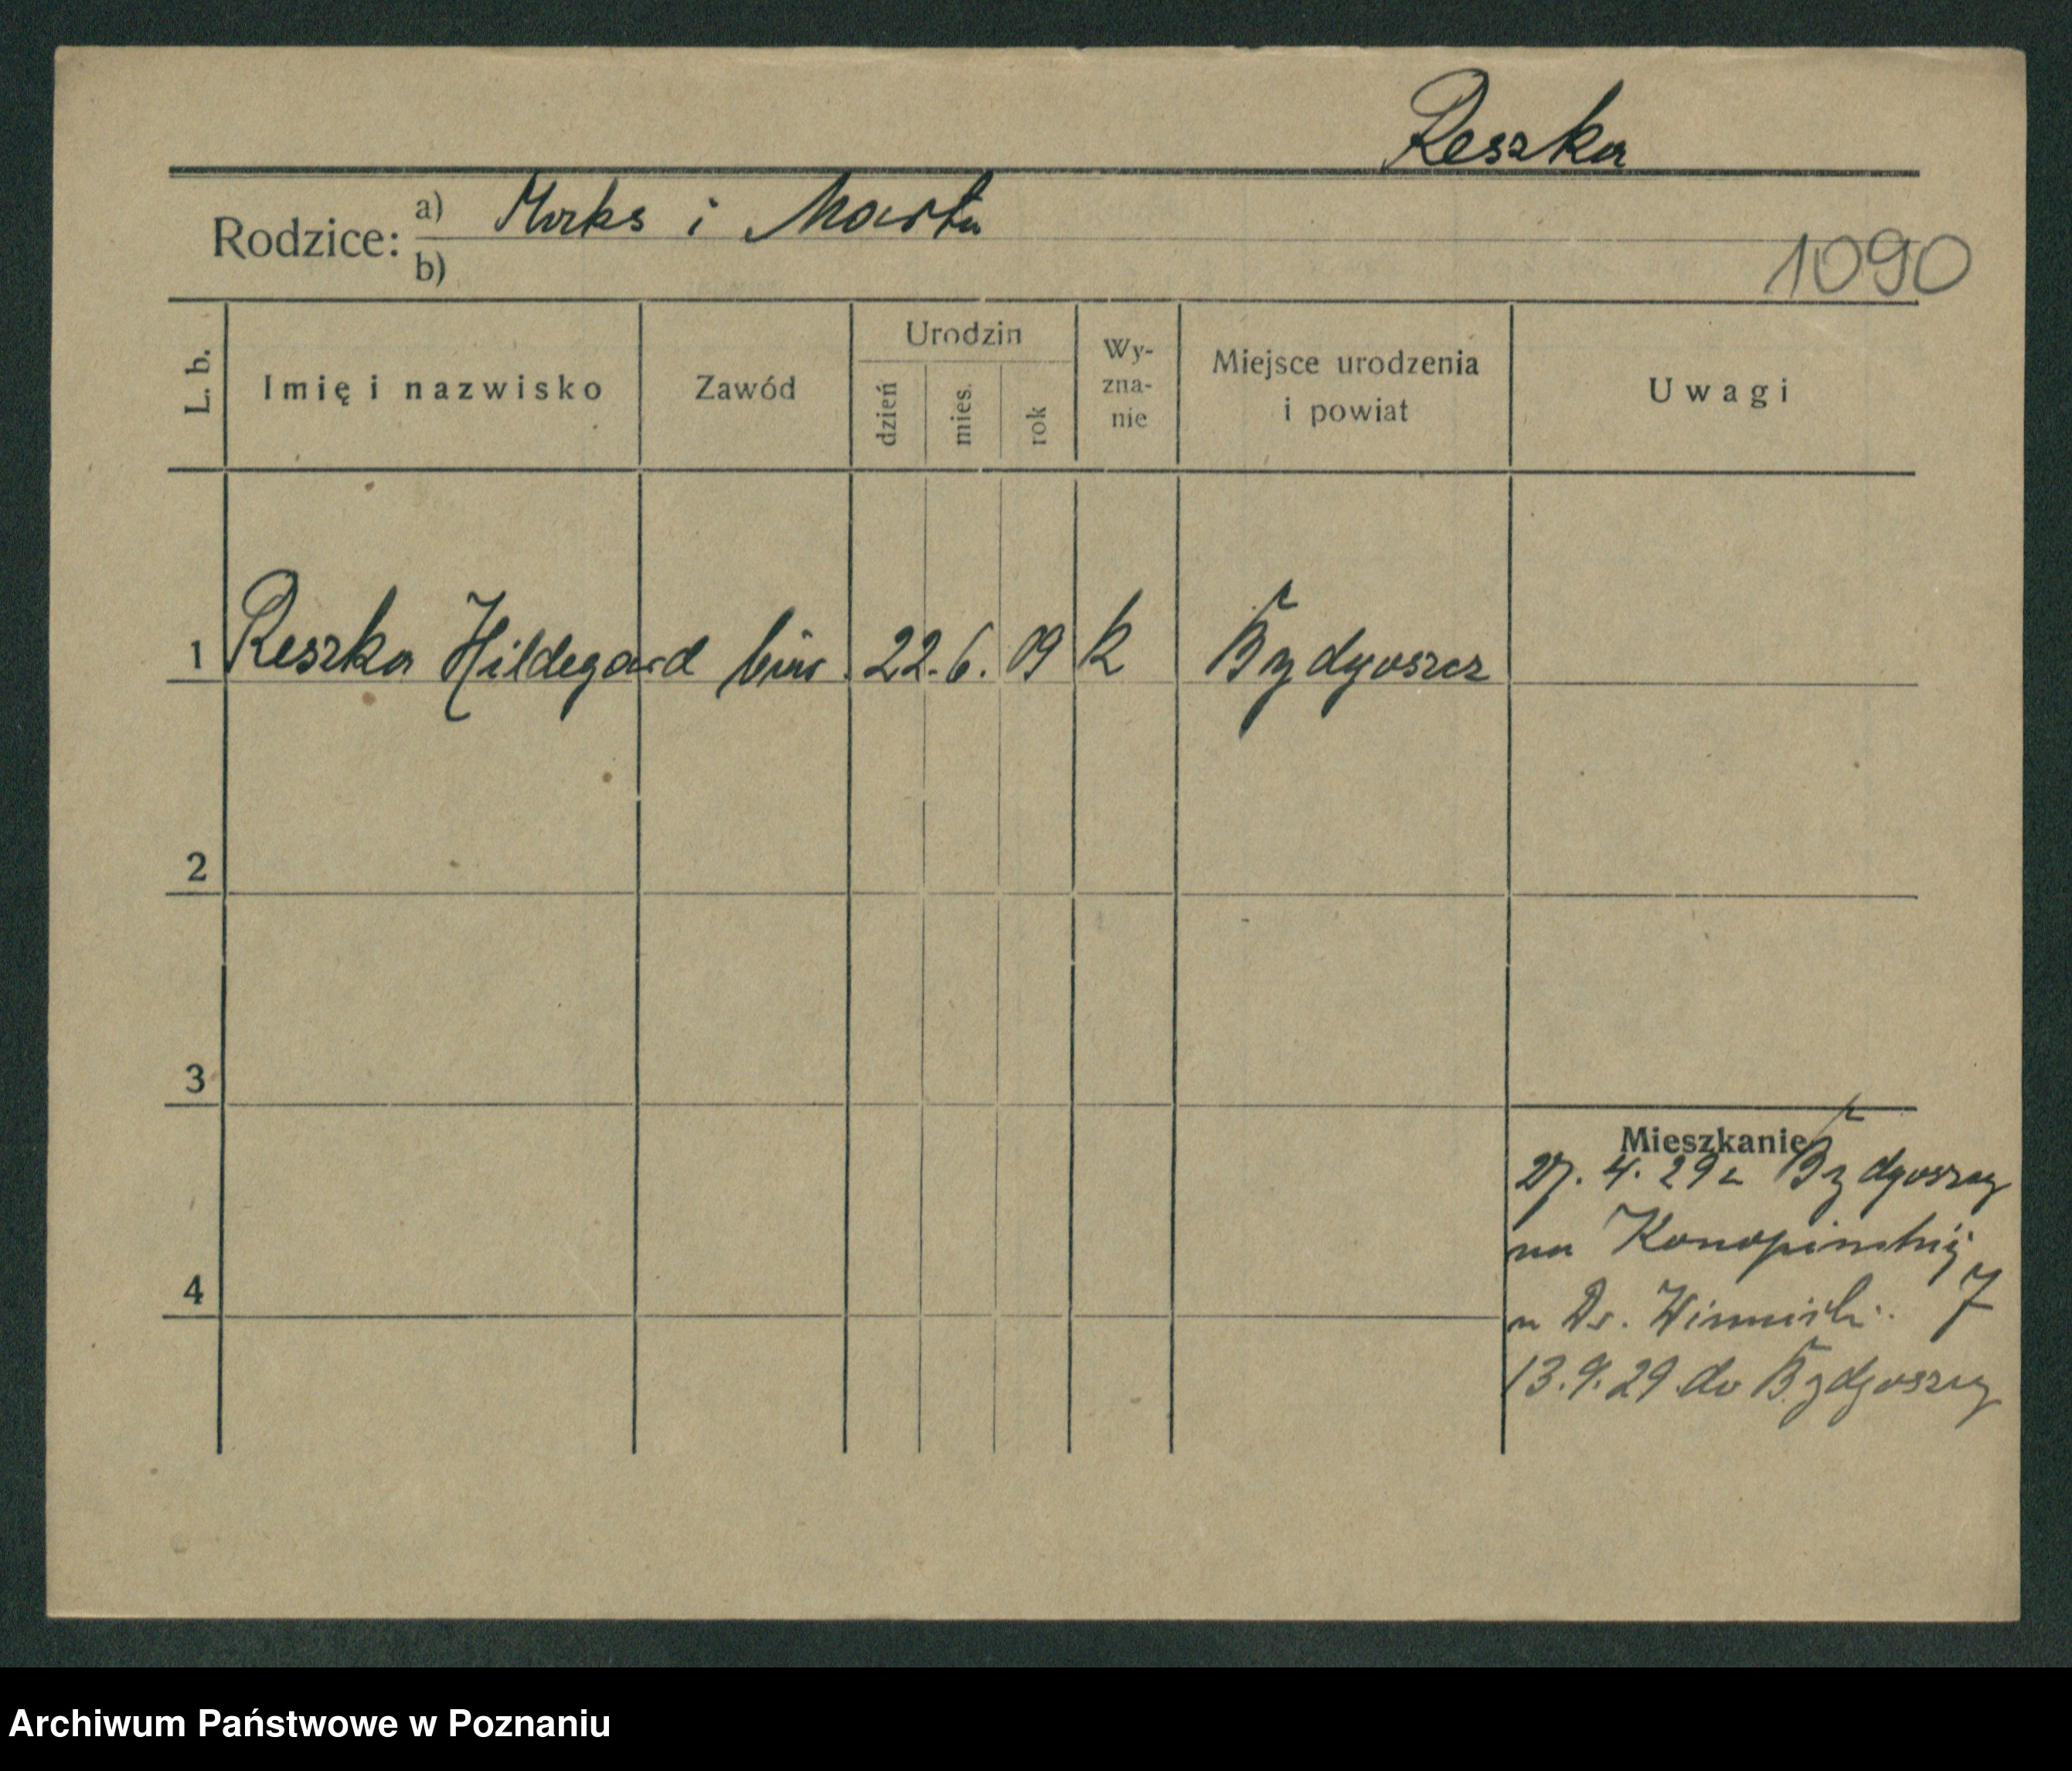 Reszka
Rodzice: a) Maks i Marta
b)
1090
L. b. Imię i nazwisko Zawód Urodzin dzień mies. rok Wy-zna-nie Miejsce urodzenia i powiat Uwagi
1 Reszka Hildegard biur. 22. 6. 09 k Bydgoszcz
2
3
Mieszkanie
27. 4. 29 z Bydgoszczy
4
na 7
u Dr.
13. 9. 29 do Bydgoszczy
Archiwum Państwowe w Poznaniu